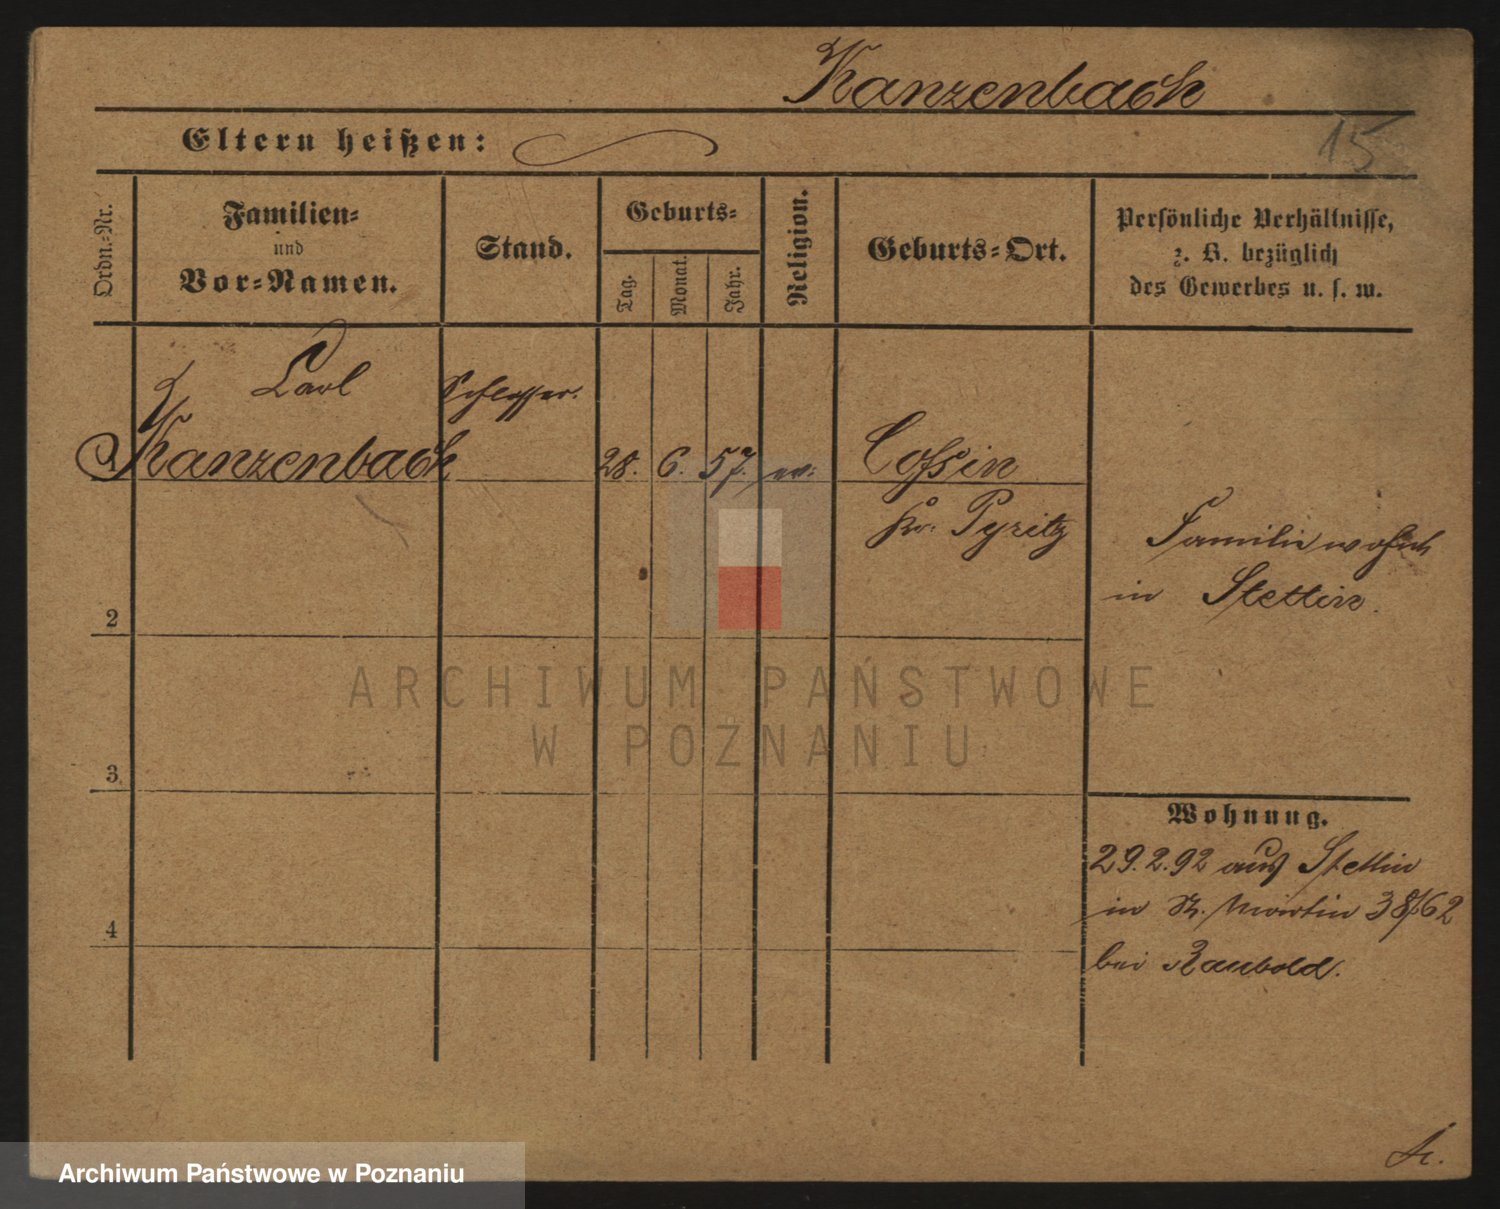 Kanzenbach
15
Eltern heißen:
Ordn.-Nr.
Familien-
und
Vor-Namen.
Stand.
Geburts-
Tag.
Monat.
Jahr.
Religion.
Geburts-Ort.
Persönliche Verhältnisse,
z. B. bezüglich
des Gewerbes u. s. w.
Carl
Schlosser.
1 Kanzenbach
28. 6. 57. ev.
Cossin
Kr. Pyritz
Familie wohnt
in Stettin.
2
3
4
Wohnung.
29.2.92 aus Stettin
in St. Martin 38/62
bei Raubold.
ARCHIWUM PAŃSTWOWE
W POZNANIU
Archiwum Państwowe w Poznaniu